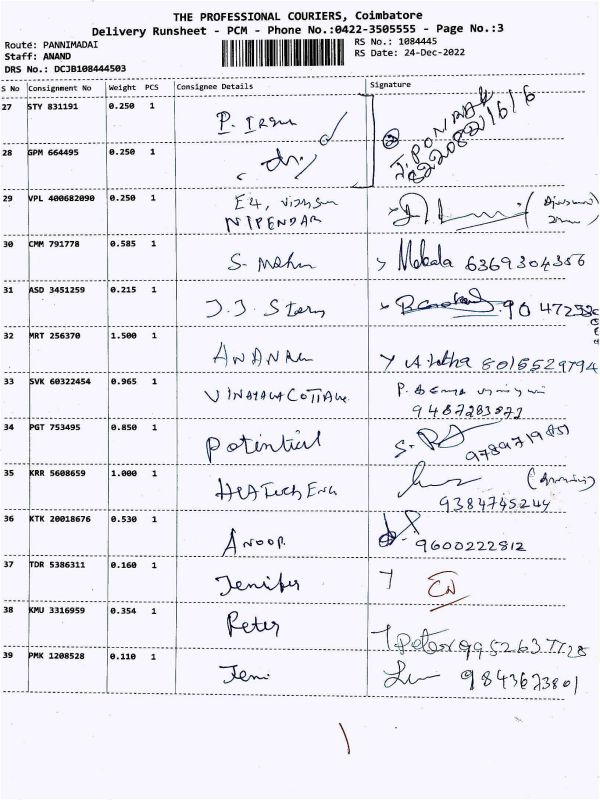 THE PROFESSIONAL COURIERS, Coimbatore
Delivery Runsheet - PCM - Phone No.:0422-3505555 - Page No.:3
Route: PANNIMADAI
RS No.: 1084445
Staff: ANAND
RS Date: 24-Dec-2022
DRS No.: DCJB108444503
S No Consignment No Weight PCS Consignee Details Signature
27 STY 831191 0.250 1 P.
28 GPM 664495 0.250 1 J. PONRAJ
29 VPL 400682090 0.250 1 E4,
NIPENDAR
30 CMM 791778 0.585 1 S. Mohan > Mekala 6369304356
31 ASD 3451259 0.215 1 J.J. Stores
32 MRT 256370 1.500 1 8015529794
33 SVK 60322454 0.965 1 VINAYAGA COTTAGE P.
9487283872
34 PGT 753495 0.850 1 Potential 9789719851
35 KRR 5608659 1.000 1 Tech Eng
9384745244
36 KTK 20018676 0.530 1 ANOOP. 9600222812
37 TDR 5386311 0.160 1 Jenifer
38 KMU 3316959 0.354 1 Peter Peter 9952637728
39 PMK 1208528 0.110 1 Jeni 9843673801